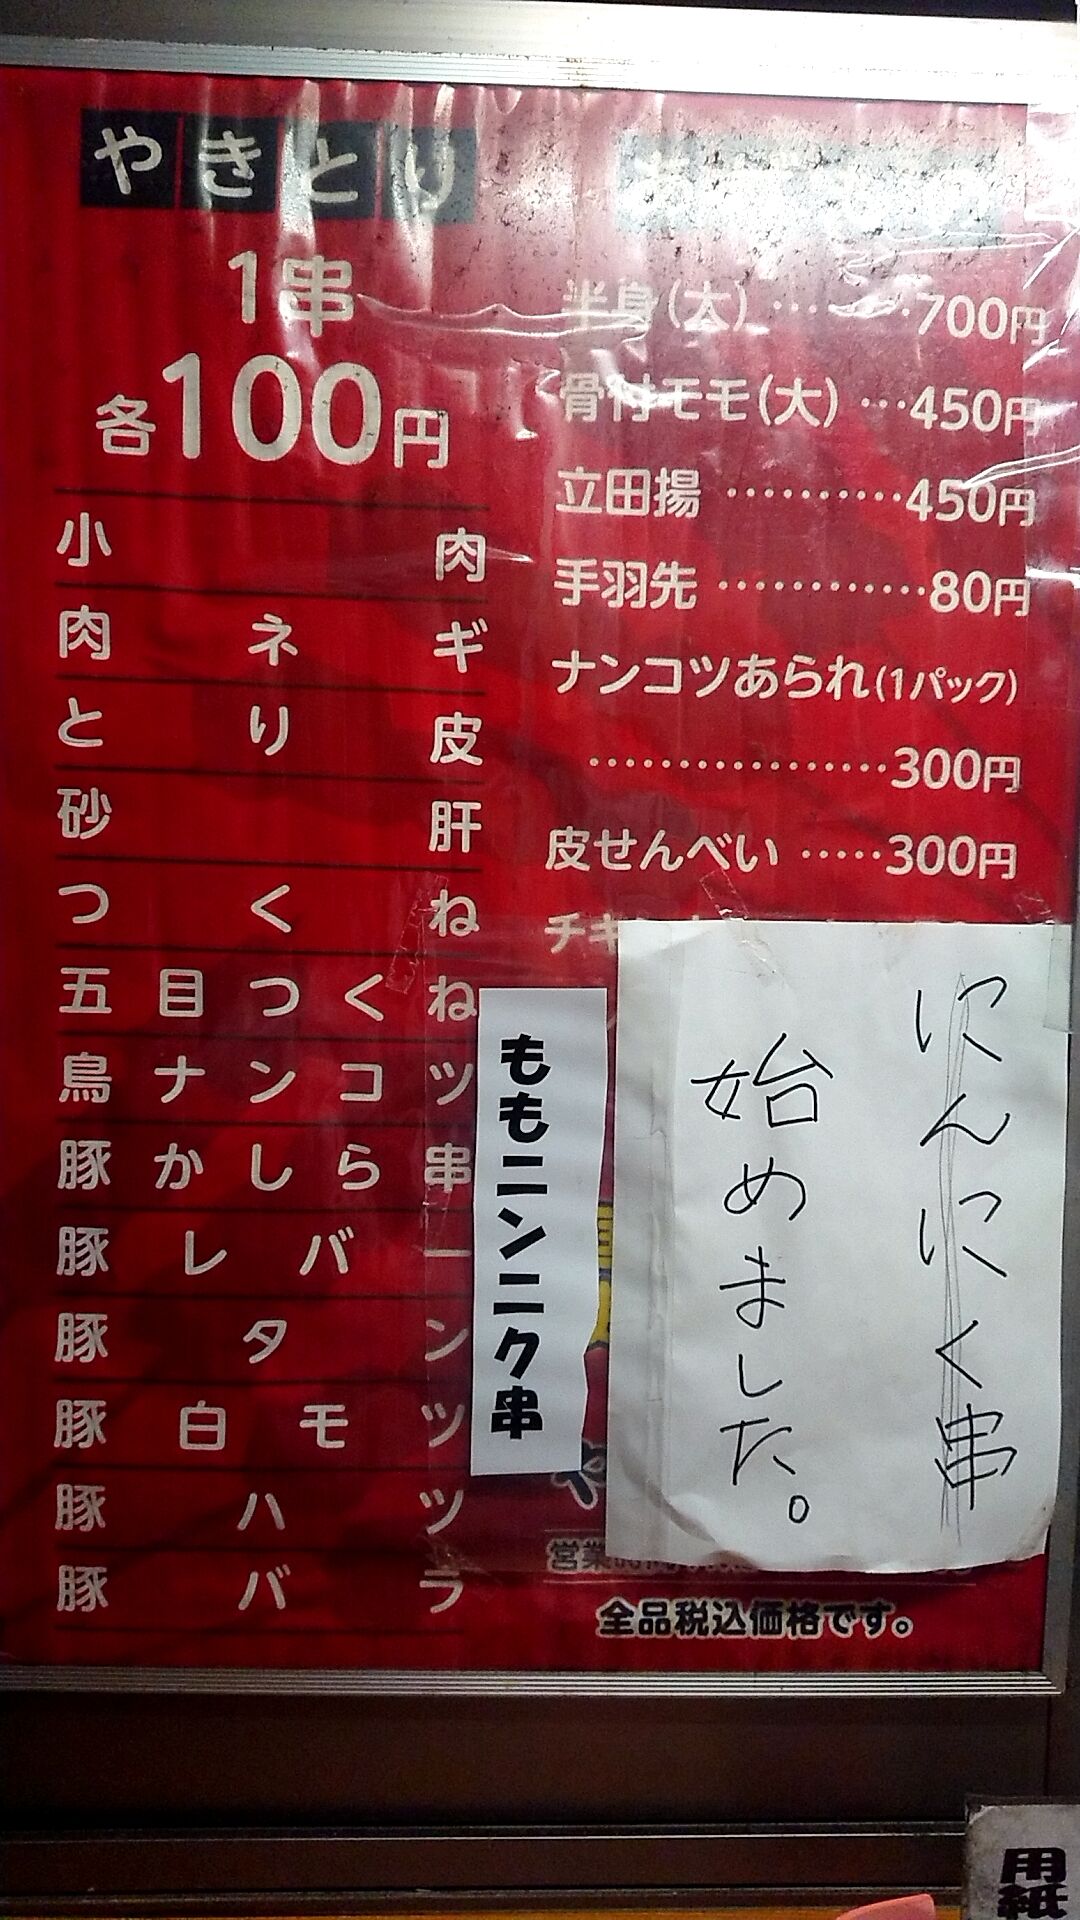 やきとり
1串
各100円
小肉
肉ネギ
とり皮
砂肝
つくね
五目つくね
鳥ナンコツ
豚かしら串
豚レバー
豚タン
豚白モツ
豚ハツ
豚バラ
半身(大)………700円
骨付モモ(大)…450円
立田揚…………450円
手羽先…………80円
ナンコツあられ(1パック)
………………300円
皮せんべい……300円
チキ
ももニンニク串
にんにく串
始めました。
営業時間
全品税込価格です。
用紙